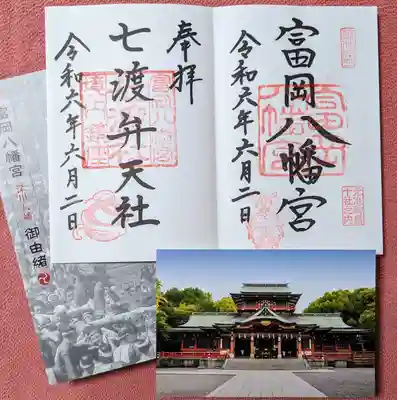 富岡八幡宮
令和六年六月二日
奉拝
七渡弁天社
令和六年六月二日
富岡八幡宮
御由緒